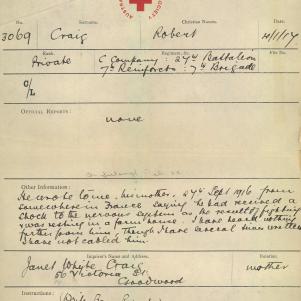 AUSTRALIAN SOCIETY
No. Surname. Christian Names. Date.
3069 Craig Robert 10/1/17
Rank. Regiment, &c. File No.
Private C Company: 27th Battalion
7th Reinforcts: 7th Brigade
OFFICIAL REPORTS:
none
Other Information:
He wrote to me, his mother, 27th Sept 1916 from
somewhere in France saying he had received a
shock to the nervous system as the result of fighting
& was resting in a farm house. I have heard nothing
further from him, though I have several times written
I have not cabled him.
Inquirer's Name and Address: Relation:
Janet Whyte Craig mother
56 Victoria St
Goodwood
Instructions: